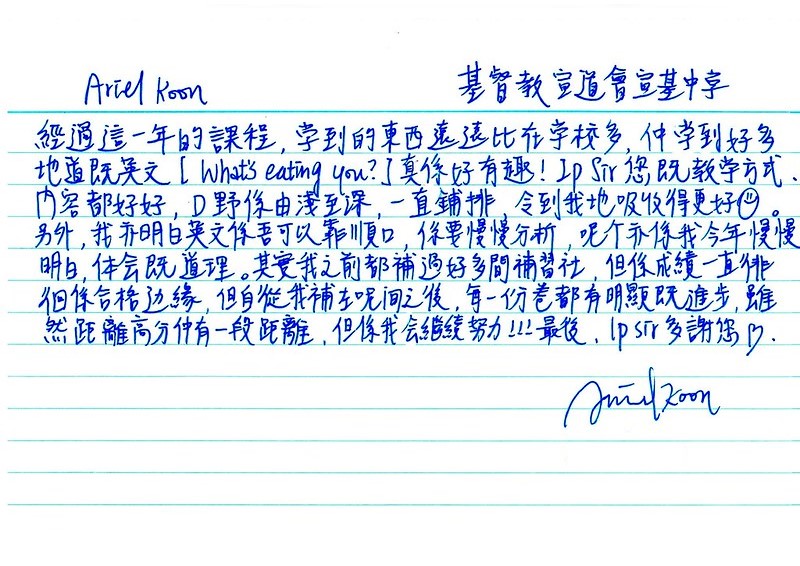 Ariel Koon 基督教宣道會宣基中学
經過這一年的課程，学到的東西遠遠比在学校多，仲学到好多
地道既英文 [ What's eating you? ] 真係好有趣！Ip Sir 您既教学方式、
內容都好好，D野係由淺至深，一直鋪排 令到我地吸收得更好☺。
另外，我亦明白英文係吾可以靠順口，係要慢慢分析，呢个亦係我今年慢慢
明白，体会既道理。其實我之前都補過好多間補習社，但係成績一直徘
徊係合格边緣，但自從我補左呢间之後，每一份卷都有明顯既進步，雖
然距離高分仲有一段距離，但係我会繼續努力!!! 最後，Ip sir 多謝您♡.
Ariel Koon